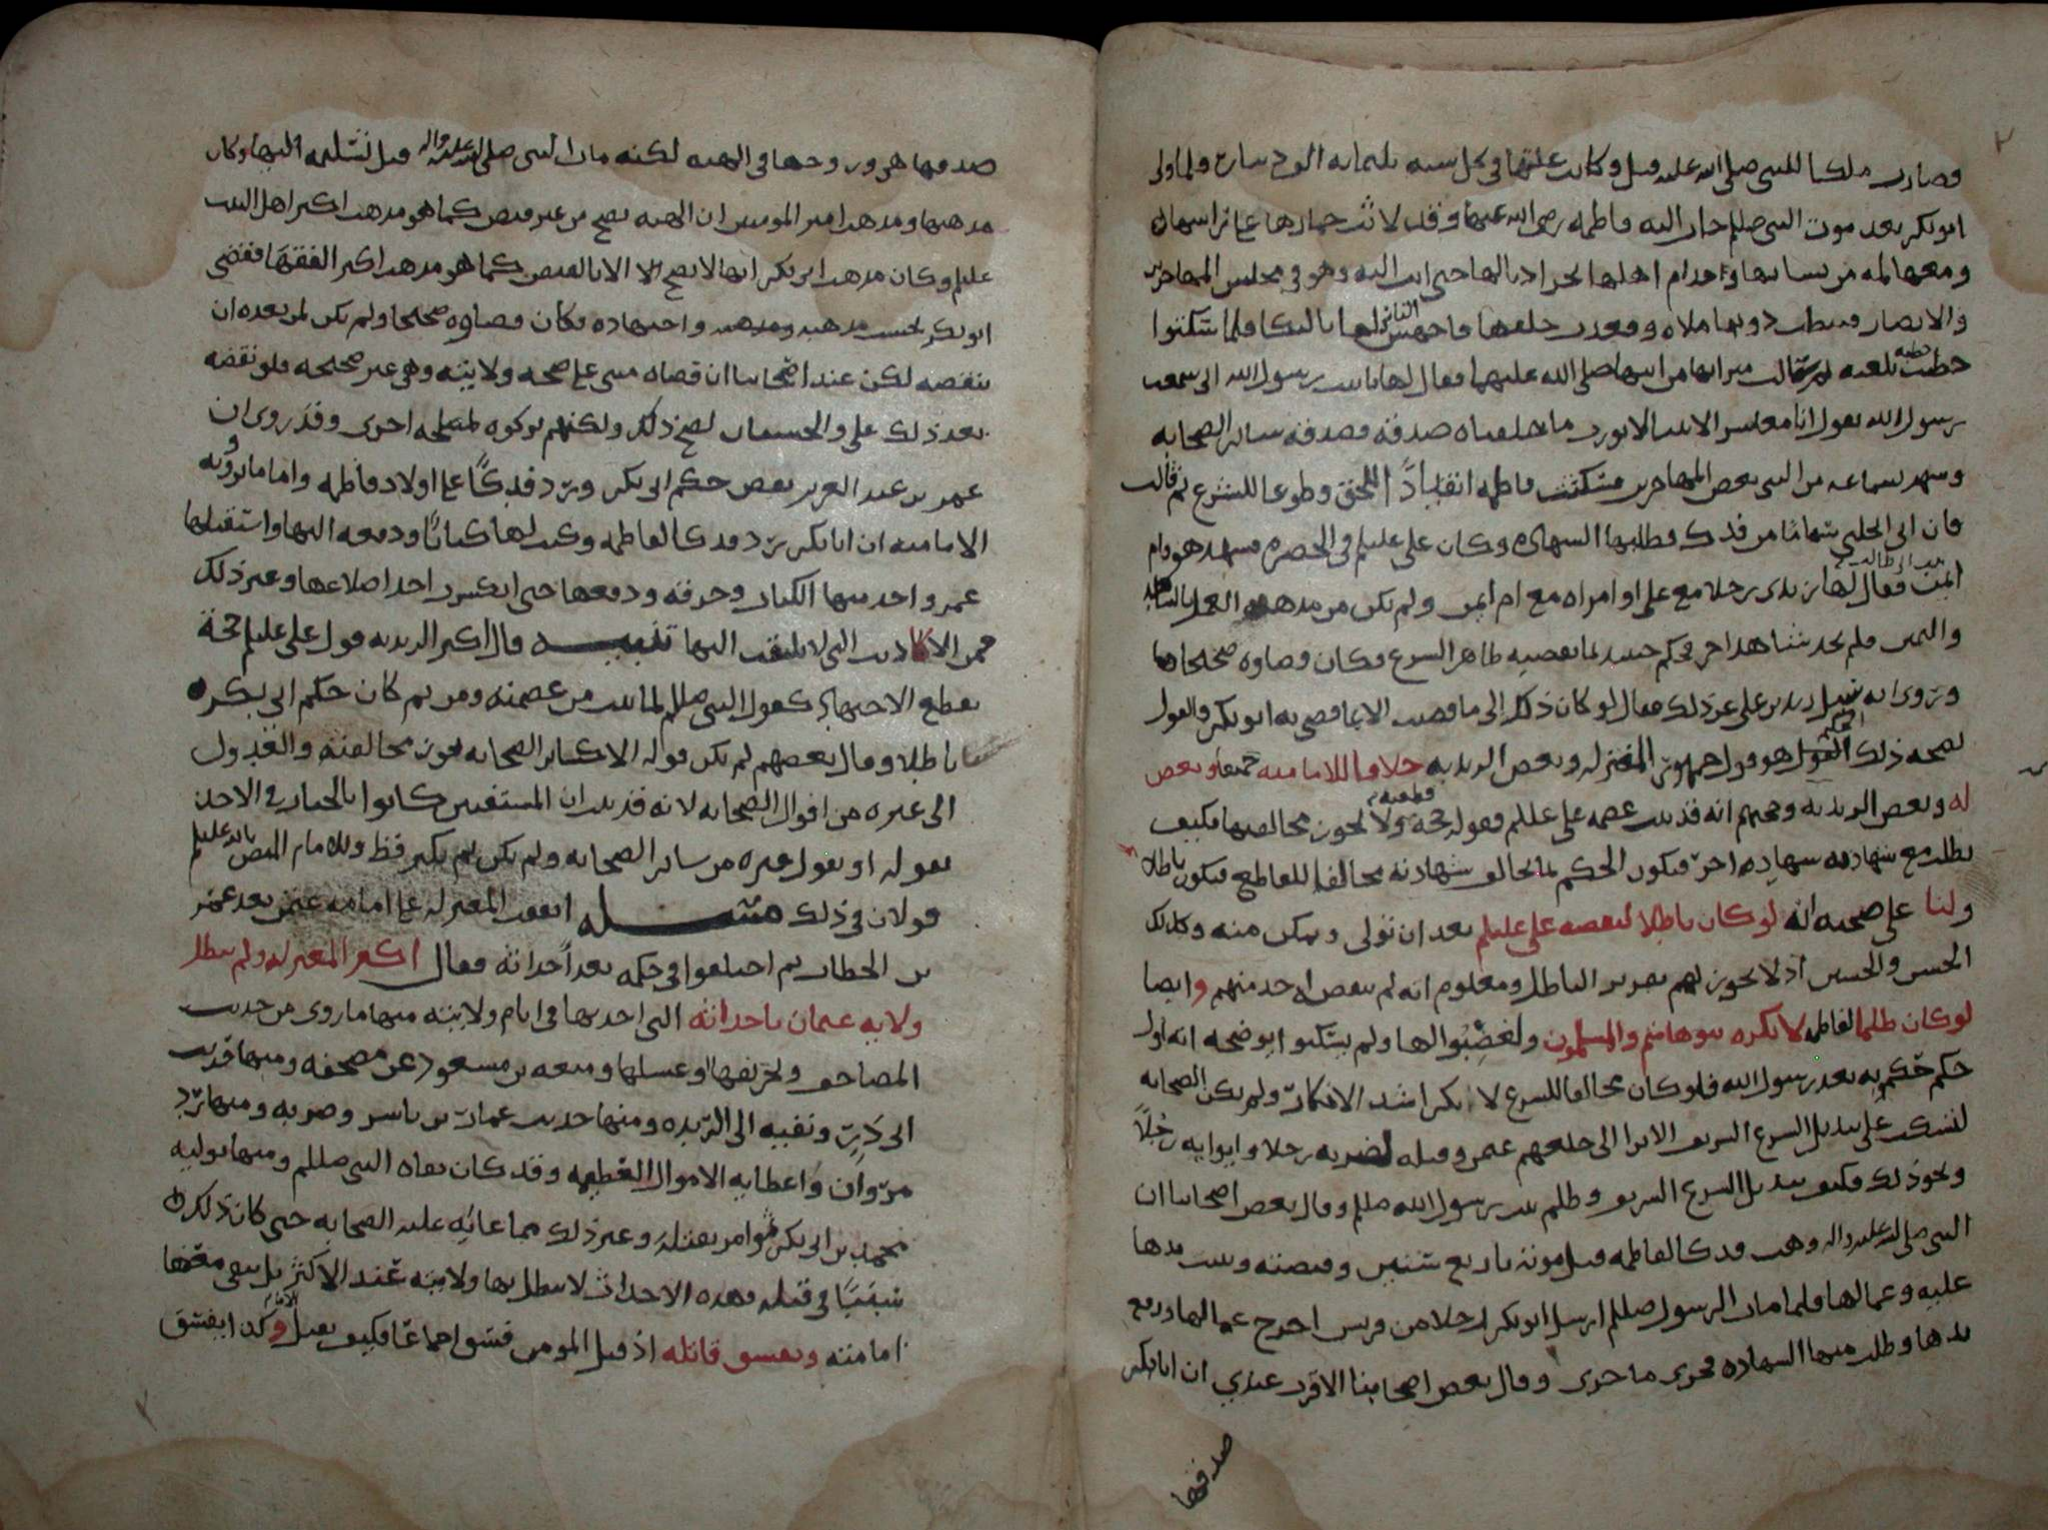 فصارت ملكا للنبي صلى الله عليه وكانت غلتها في كل سنه ثلثمايه الف دينار فلما ولي
ابو بكر بعد موت النبي صللم جات اليه فاطمه رضي الله عنها وقد لاثت خمارها على راسها
ومعها لمه من نسائها وخدام اهلها تجر اذيالها حتى اتت اليه وهو في مجلس المهاجرين
والانصار فنيطت دونها ملاه وقعدت خلفها فاجهش الناس لها بالبكا فلما سكتوا
خطبت خطبه بليغه ثم سالت ميراثها من ابيها صلى الله عليهما فقال لها يا بنت رسول الله اني سمعت
رسول الله يقول انا معاشر الانبيا لا نورث ما خلفناه صدقه فصدقه ساير الصحابه
وشهد بسماعه من النبي بعض المهاجرين فسكتت فاطمه انقيادًا للحق وطوعا للشرع ثم قالت
فان ابي انحلني شيئا من فدك فطلبها الشهاده وكان علي عليلم في الحضره فشهد هو وام
ايمن فقال لها زيدي رجلا مع علي او امراه مع ام ايمن ولم يكن من مذهبه العمل بالشاهد
واليمين فلم تجد شاهدا اخر فحكم حينيذ بما يقتضيه ظاهر الشرع فكان قضاوه صحيحا
وروي انه سيل زيد بن علي عن ذلك فقال لو كان ذلك الي ما قضيت الا بما قضى به ابو بكر والقول
بصحه ذلك الحكم هو قول جمهور المعتزله وبعض الزيديه خلافا للاماميه جميعا وبعض
له وبعض الزيديه وحجتهم انه قد ثبت عصمه علي عللم فقوله حجه قطعيه ولا يجوز مخالفتها فكيف
يطلب مع شهادته شهاده اخر فيكون الحكم بما يخالف شهادته مخالفا للقاطع فيكون باطلا
ولنا على صحته انه لو كان باطلا لنقضه علي عليلم بعد ان تولى وتمكن منه وكذلك
الحسن والحسين اذ لا يجوز لهم تقرير الباطل ومعلوم انه لم ينقض احد منهم وايضا
لو كان ظلما لفاطمه لانكره بنو هاشم والمسلمون ولغضبوا لها ولم يسكتوا يوضحه انه اول
حكم حكم به بعد رسول الله فلو كان مخالفا للشرع لانكر اشد الانكار ولم يكن الصحابه
لتسكت على تبديل الشرع الشريف الا ترا الى خلعهم عثمن وقتله لضربه رجلا وايوايه رجلًا
ونحو ذلك فكيف بتبديل الشرع الشريف وظلم بنت رسول الله صللم وقال بعض اصحابنا ان
النبي صلى الله عليه واله وهب فدكا لفاطمه قبل موته باربع سنين وقبضته وثبت يدها
عليه وعمالها فلما مات الرسول صللم ارسل ابو بكر رجلا من قريش اخرج عمالها ورفع
يدها وطلب منها الشهاده فجرى ما جرى وقال بعض اصحابنا الاقرب عندي ان ابا بكر
صدقها
صدقها هي وزوجها في الهبه لكنه مات النبي صلى الله عليه واله قبل تسليمه اليها وكان
مذهبها ومذهب امير المومنين ان الهبه تصح من غير قبض كما هو مذهب اكثر اهل البيت
عليلم وكان مذهب ابي بكر انها لا تصح الا بالقبض كما هو مذهب اكثر الفقها فقضى
ابو بكر بحسب مذهبه واجتهاده فكان قضاوه صحيحا ولم يكن لمن بعده ان
ينقضه لكن عند اصحابنا ان قضاه مبني على صحه ولايته وهي غير صحيحه فلو نقضه
بعد ذلك علي والحسنان لصح ذلك ولكنهم تركوه لمصلحه اخرى وقد روي ان
عمر بن عبد العزيز نقض حكم ابي بكر ورد فدكًا على اولاد فاطمه واما ما ترويه
الاماميه ان ابا بكر رد فدكا لفاطمه وكتب لها كتابًا ودفعه اليها واستقبلها
عمر واخذ منها الكتاب وخرقه ودفعها حتى انكسرت احد اضلاعها وغير ذلك
فمن الاكاذيب التي لا يلتفت اليها تنبيه قال اكثر الزيديه قول علي عليلم حجه
يقطع الاجتهاد كقول النبي صللم لما ثبت من عصمته ومن ثم كان حكم ابي بكر
باطلا وقال بعضهم لم يكن قوله الا كساير الصحابه يجوز مخالفته والعدول
الى غيره من اقوال الصحابه لانه قد ثبت ان المستفتين كانوا بالخيار في الاخذ
بقوله او بقول غيره من ساير الصحابه ولم يكن ثم نكير قط وللامام المنصور بالله عليلم
قولان في ذلك مسئله اتفقت المعتزله على امامه عثمن بعد عمر
بن الخطاب ثم اختلفوا في حكمه بعد احداثه فقال اكثر المعتزله ولم تبطل
ولايه عثمان باحداثه التي احدثها في ايام ولايته منها ما روي من حديث
المصاحف وتحريقها او غسلها ومنعه بن مسعود عن مصحفه ومنها حديث
ابي ذرٍ ونفيه الى الربذه ومنها حديث عمار بن ياسر وضربه ومنها رد
مروان واعطايه الاموال العظيمه وقد كان نفاه النبي صللم ومنها توليه
محمد بن ابي بكر ثم امر بقتله وغير ذلك مما عابه عليه الصحابه حتى كان ذلك
سببًا في قتله فهذه الاحداث لا تبطل بها ولايته عند الاكثر بل تبقى معها
امامته ويفسق قاتله اذ قتل المومن فسق اجماعًا فكيف بقتل الامام وكذا يفسق